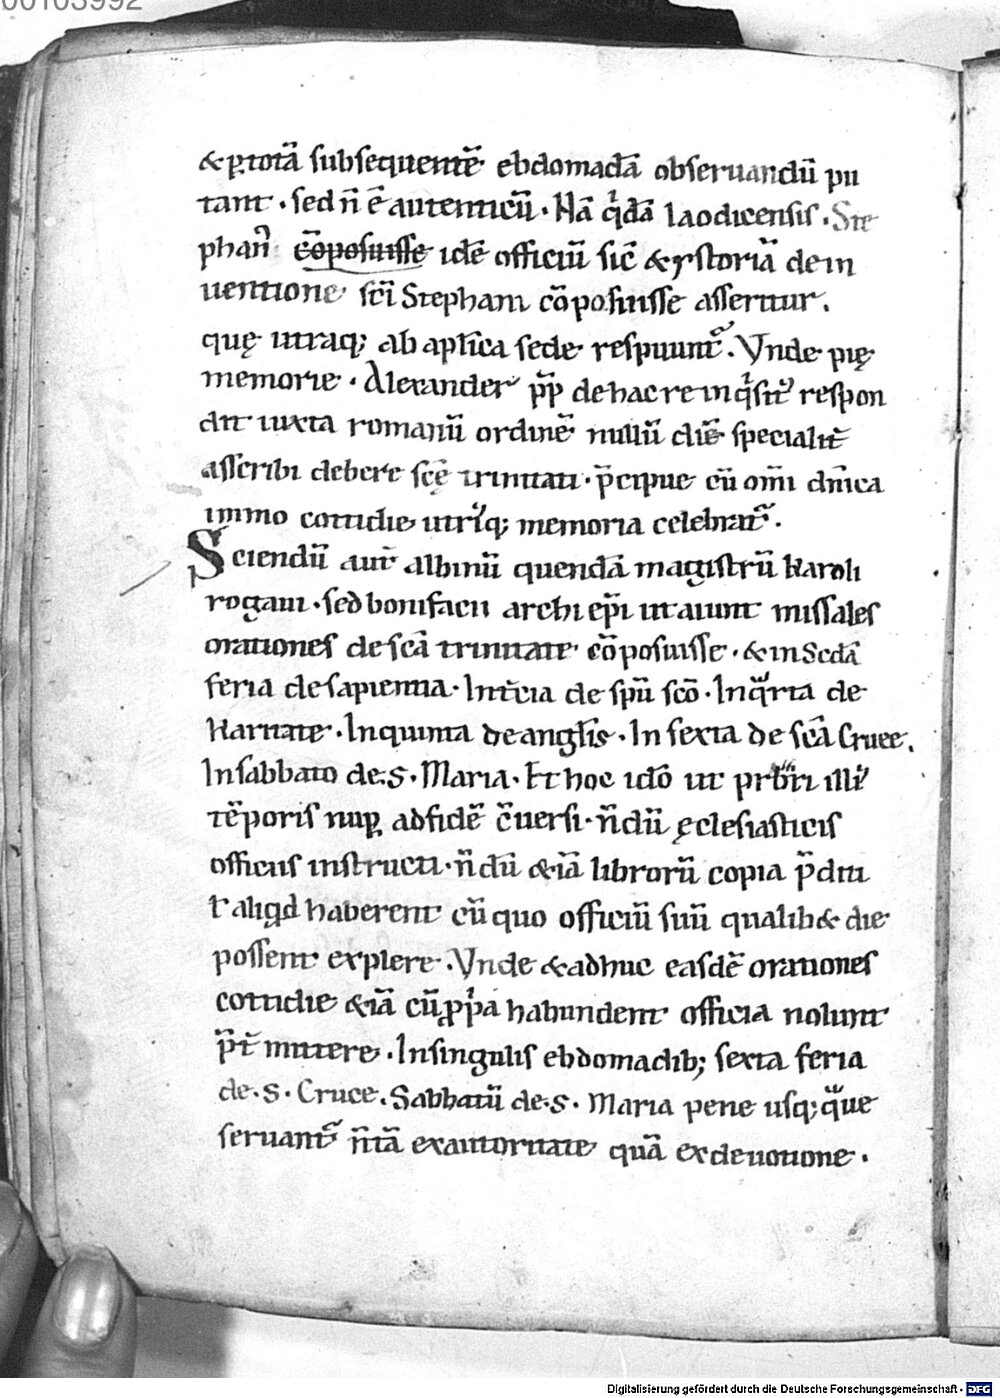 00103992
& ꝑtotā subsequentē ebdomadā obseruandū pu
tant . sed n̄ ē autenticū . Nā q̇dā laodicensis . Ste
phan᷒ cōposuisse idē officiū sic̄ & ystoriā de in
uentione sc̄i Stephani cōposuisse asseritur .
quę utraq; ab apl̄ica sede respuunt᷑ . Vnde pię
memorie . Alexander pp̄ de hac re inq̇sit᷒ respon
dit iuxta romanū ordinē nullū diē specialit̄
asscribi debere scę̄ trinitati . p̄cipue cū om̄i dn̄ica
immo cottidie utri᷒q; memoria celebrat᷑ .
Sciendū aut̄ albinū quendā magistrū Karoli
rogatu . sed bonifacii archiep̄i ut aiunt missales
orationes de sc̄a trinitate cōposuisse . & in Scdā
feria de sapientia . In t̄cia de sp̄u sc̄o . In q̄rta de
Karitate . In quinta de angl̄is . In sexta de sc̄a Cruce .
In sabbato de . S . Maria . Et hoc idō ut prb̄ri illi᷒
tēporis nuꝑ ad fidē c̄uersi . n̄dū ęclesiasticis
officiis instructi . n̄dū &iā librorū copia p̄diti
ł aliqd haberent cū quo officiū suū qualib& die
possent explere . Vnde & adhuc easdē orationes
cottidie &iā cū ꝓpͥa habundent officia nolunt
p̄t̄mittere . In singulis ebdomadib; sexta feria
de . S . Cruce . Sabbatū de . S . Maria pene usq; q̄que
seruant᷑ n̄ tā ex autoritate quā ex deuotione .
Digitalisierung gefördert durch die Deutsche Forschungsgemeinschaft - DFG